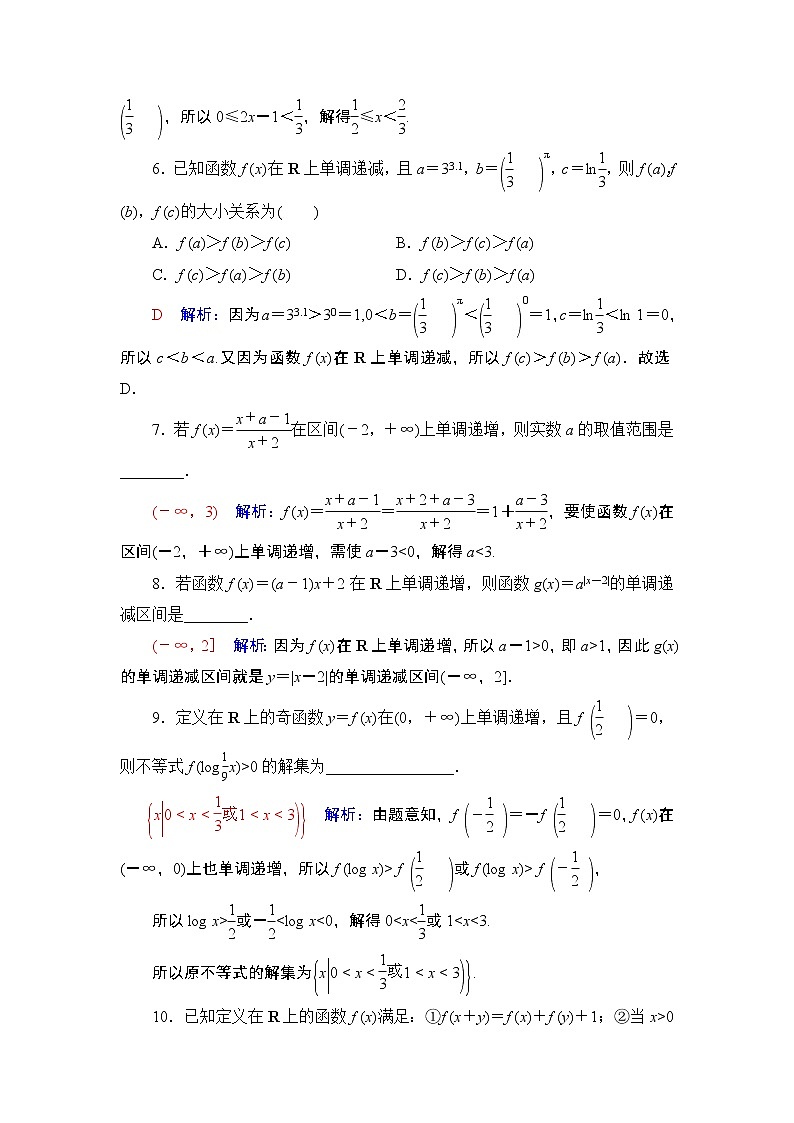 (1/3),所以 0≤2x-1<1/3,解得1/2≤x<2/3.
6.已知函数 f (x)在 R 上单调递减,且 a=3^3.1,b=(1/3)^π,c=ln1/3,则 f (a),f
(b),f (c)的大小关系为(  )
A.f (a)>f (b)>f (c) B.f (b)>f (c)>f (a)
C.f (c)>f (a)>f (b) D.f (c)>f (b)>f (a)
D 解析:因为a=3^3.1>3^0=1,0<b=(1/3)^π<(1/3)^0=1,c=ln1/3<ln 1=0,
所以 c<b<a.又因为函数 f (x)在 R 上单调递减,所以 f (c)>f (b)>f (a).故选
D.
7.若 f (x)=(x+a-1)/(x+2)在区间(-2,+∞)上单调递增,则实数 a 的取值范围是
________.
(-∞,3) 解析:f (x)=(x+a-1)/(x+2)=(x+2+a-3)/(x+2)=1+(a-3)/(x+2),要使函数 f (x)在
区间(-2,+∞)上单调递增,需使 a-3<0,解得 a<3.
8.若函数 f (x)=(a-1)x+2 在 R 上单调递增,则函数 g(x)=a^|x-2|的单调递
减区间是________.
(-∞,2] 解析:因为 f (x)在 R 上单调递增,所以 a-1>0,即 a>1,因此 g(x)
的单调递减区间就是 y=|x-2|的单调递减区间(-∞,2].
9.定义在 R 上的奇函数 y=f (x)在(0,+∞)上单调递增,且 f (1/2)=0,
则不等式 f (log1/9x)>0 的解集为________________.
{x|0<x<1/3或1<x<3} 解析:由题意知,f (-1/2)=-f (1/2)=0,f (x)在
(-∞,0)上也单调递增,所以 f (log x)> f (1/2)或 f(log x)> f (-1/2),
所以 log x>1/2或-1/2<log x<0,解得 0<x<1/3或 1<x<3.
所以原不等式的解集为{x|0<x<1/3或1<x<3}.
10.已知定义在 R 上的函数 f (x)满足:①f (x+y)=f (x)+f (y)+1;②当 x>0